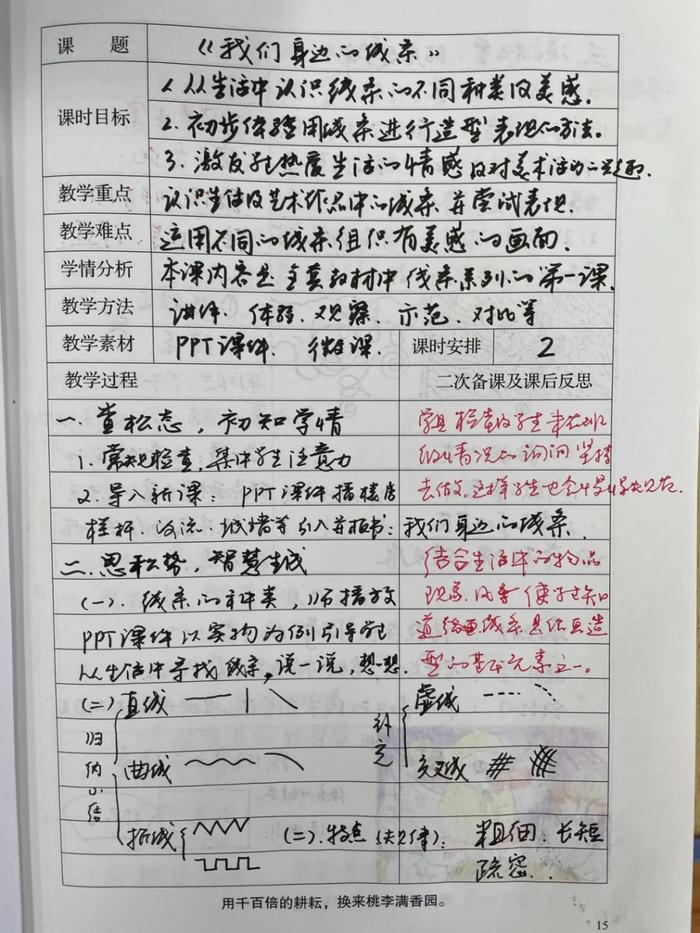 课 题 《我们身边的线条》
课时目标 1.从生活中认识线条的不同种类及美感.
2.初步体验用线条进行造型表现的方法。
3.激发学生热爱生活的情感及对美术活动的兴趣.
教学重点 认识生活及艺术作品中的线条并尝试表现.
教学难点 运用不同的线条组织有美感的画面.
学情分析 本课内容是全套教材中线条系列的第一课.
教学方法 讲解、体验、观察、示范、对比等
教学素材 PPT课件、微课. 课时安排 2
教学过程 二次备课及课后反思
一.查松态,初知学情
1.常规检查,集中学生注意力
2.导入新课:PPT课件播楼房
栏杆.河流.城墙等引入并板书:我们身边的线条.
二.思松势,智慧生成
(一).线条的种类,师播放
PPT课件以实物为例引导学生
从生活中寻找线条,说一说,想一想.
检查
情况的询问坚持
去做,这样学生也会
结合生活中的物品
现象.内容使学生知
道线条是绘画造
型的基本元素之一。
(二)直线
虚线
归纳小结
补充
曲线
交叉线
折线
(二).特点 粗细.长短
疏密..
用千百倍的耕耘,换来桃李满香园。
15